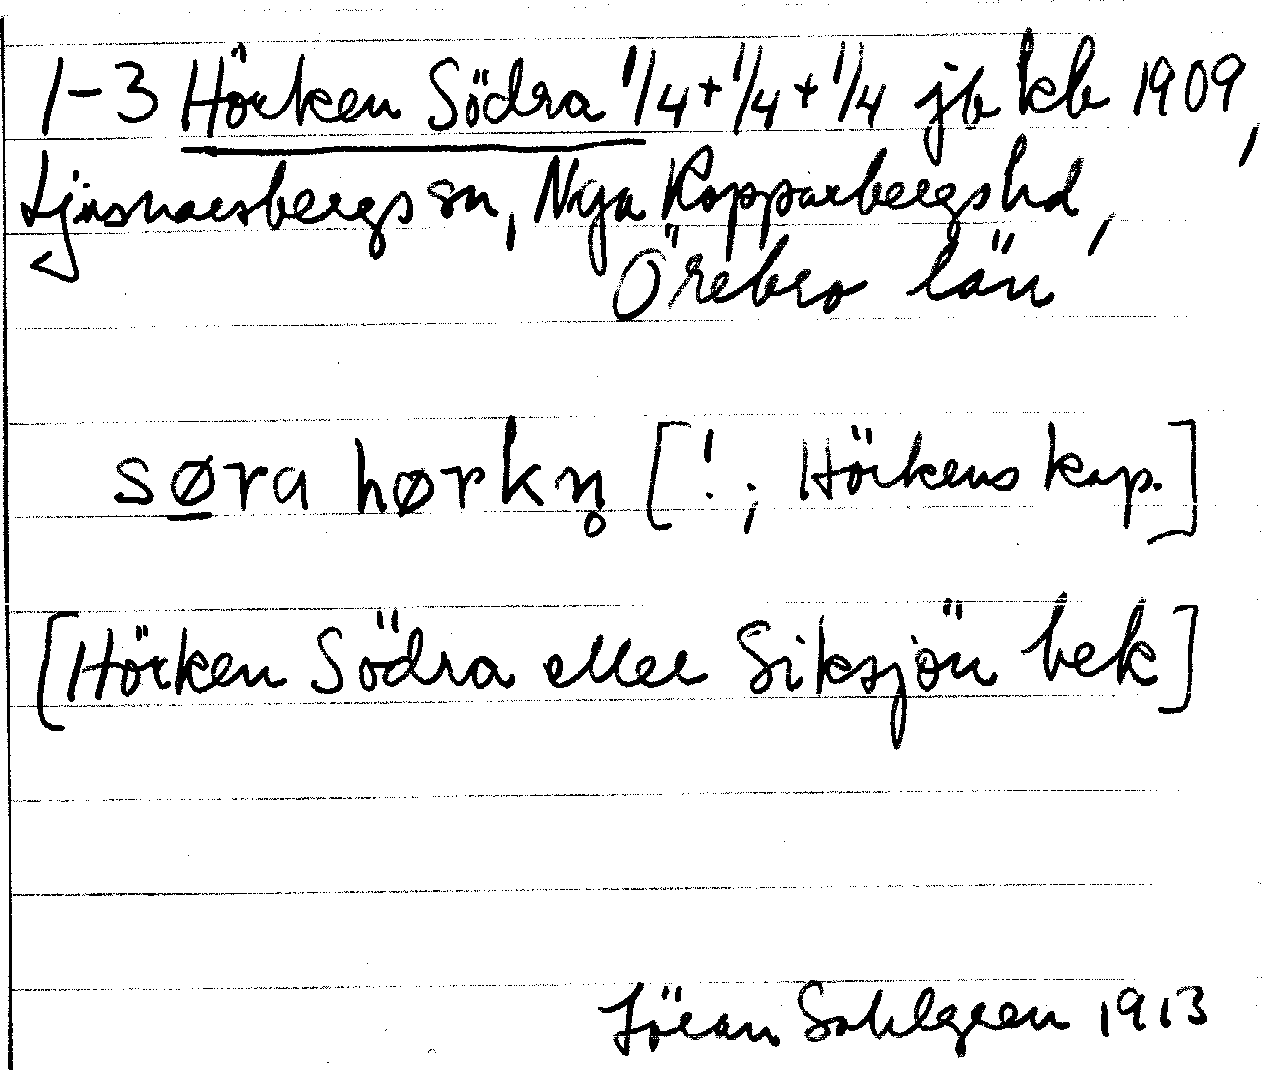 1-3 Hörken Södra 1/4+1/4+1/4 jb kb 1909,
Ljusnarsbergs sn, Nya Kopparbergs hd,
Örebro län
sø̲ra hørkn̥ [!; Hörkens kap.]
[Hörken Södra eller Siksjön bek]
Jöran Sahlgren 1913